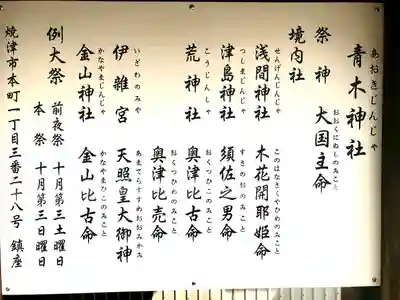 青木神社
あおきじんじゃ
祭神 大国主命
おおくにぬしのみこと
境内社
浅間神社 木花開耶姫命
せんげんじんじゃ このはなさくやひめのみこと
津島神社 須佐之男命
つしまじんじゃ すさのおのみこと
荒神社 奥津比古命
こうじんしゃ おくつひこのみこと
奥津比売命
おくつひめのみこと
伊雜宮 天照皇大御神
いざわのみや あまてらすすめおおみかみ
金山神社 金山比古命
かなやまじんじゃ かなやまひこのみこと
例大祭 前夜祭 十月第三土曜日
本祭 十月第三日曜日
焼津市本町一丁目三番二十八号 鎮座